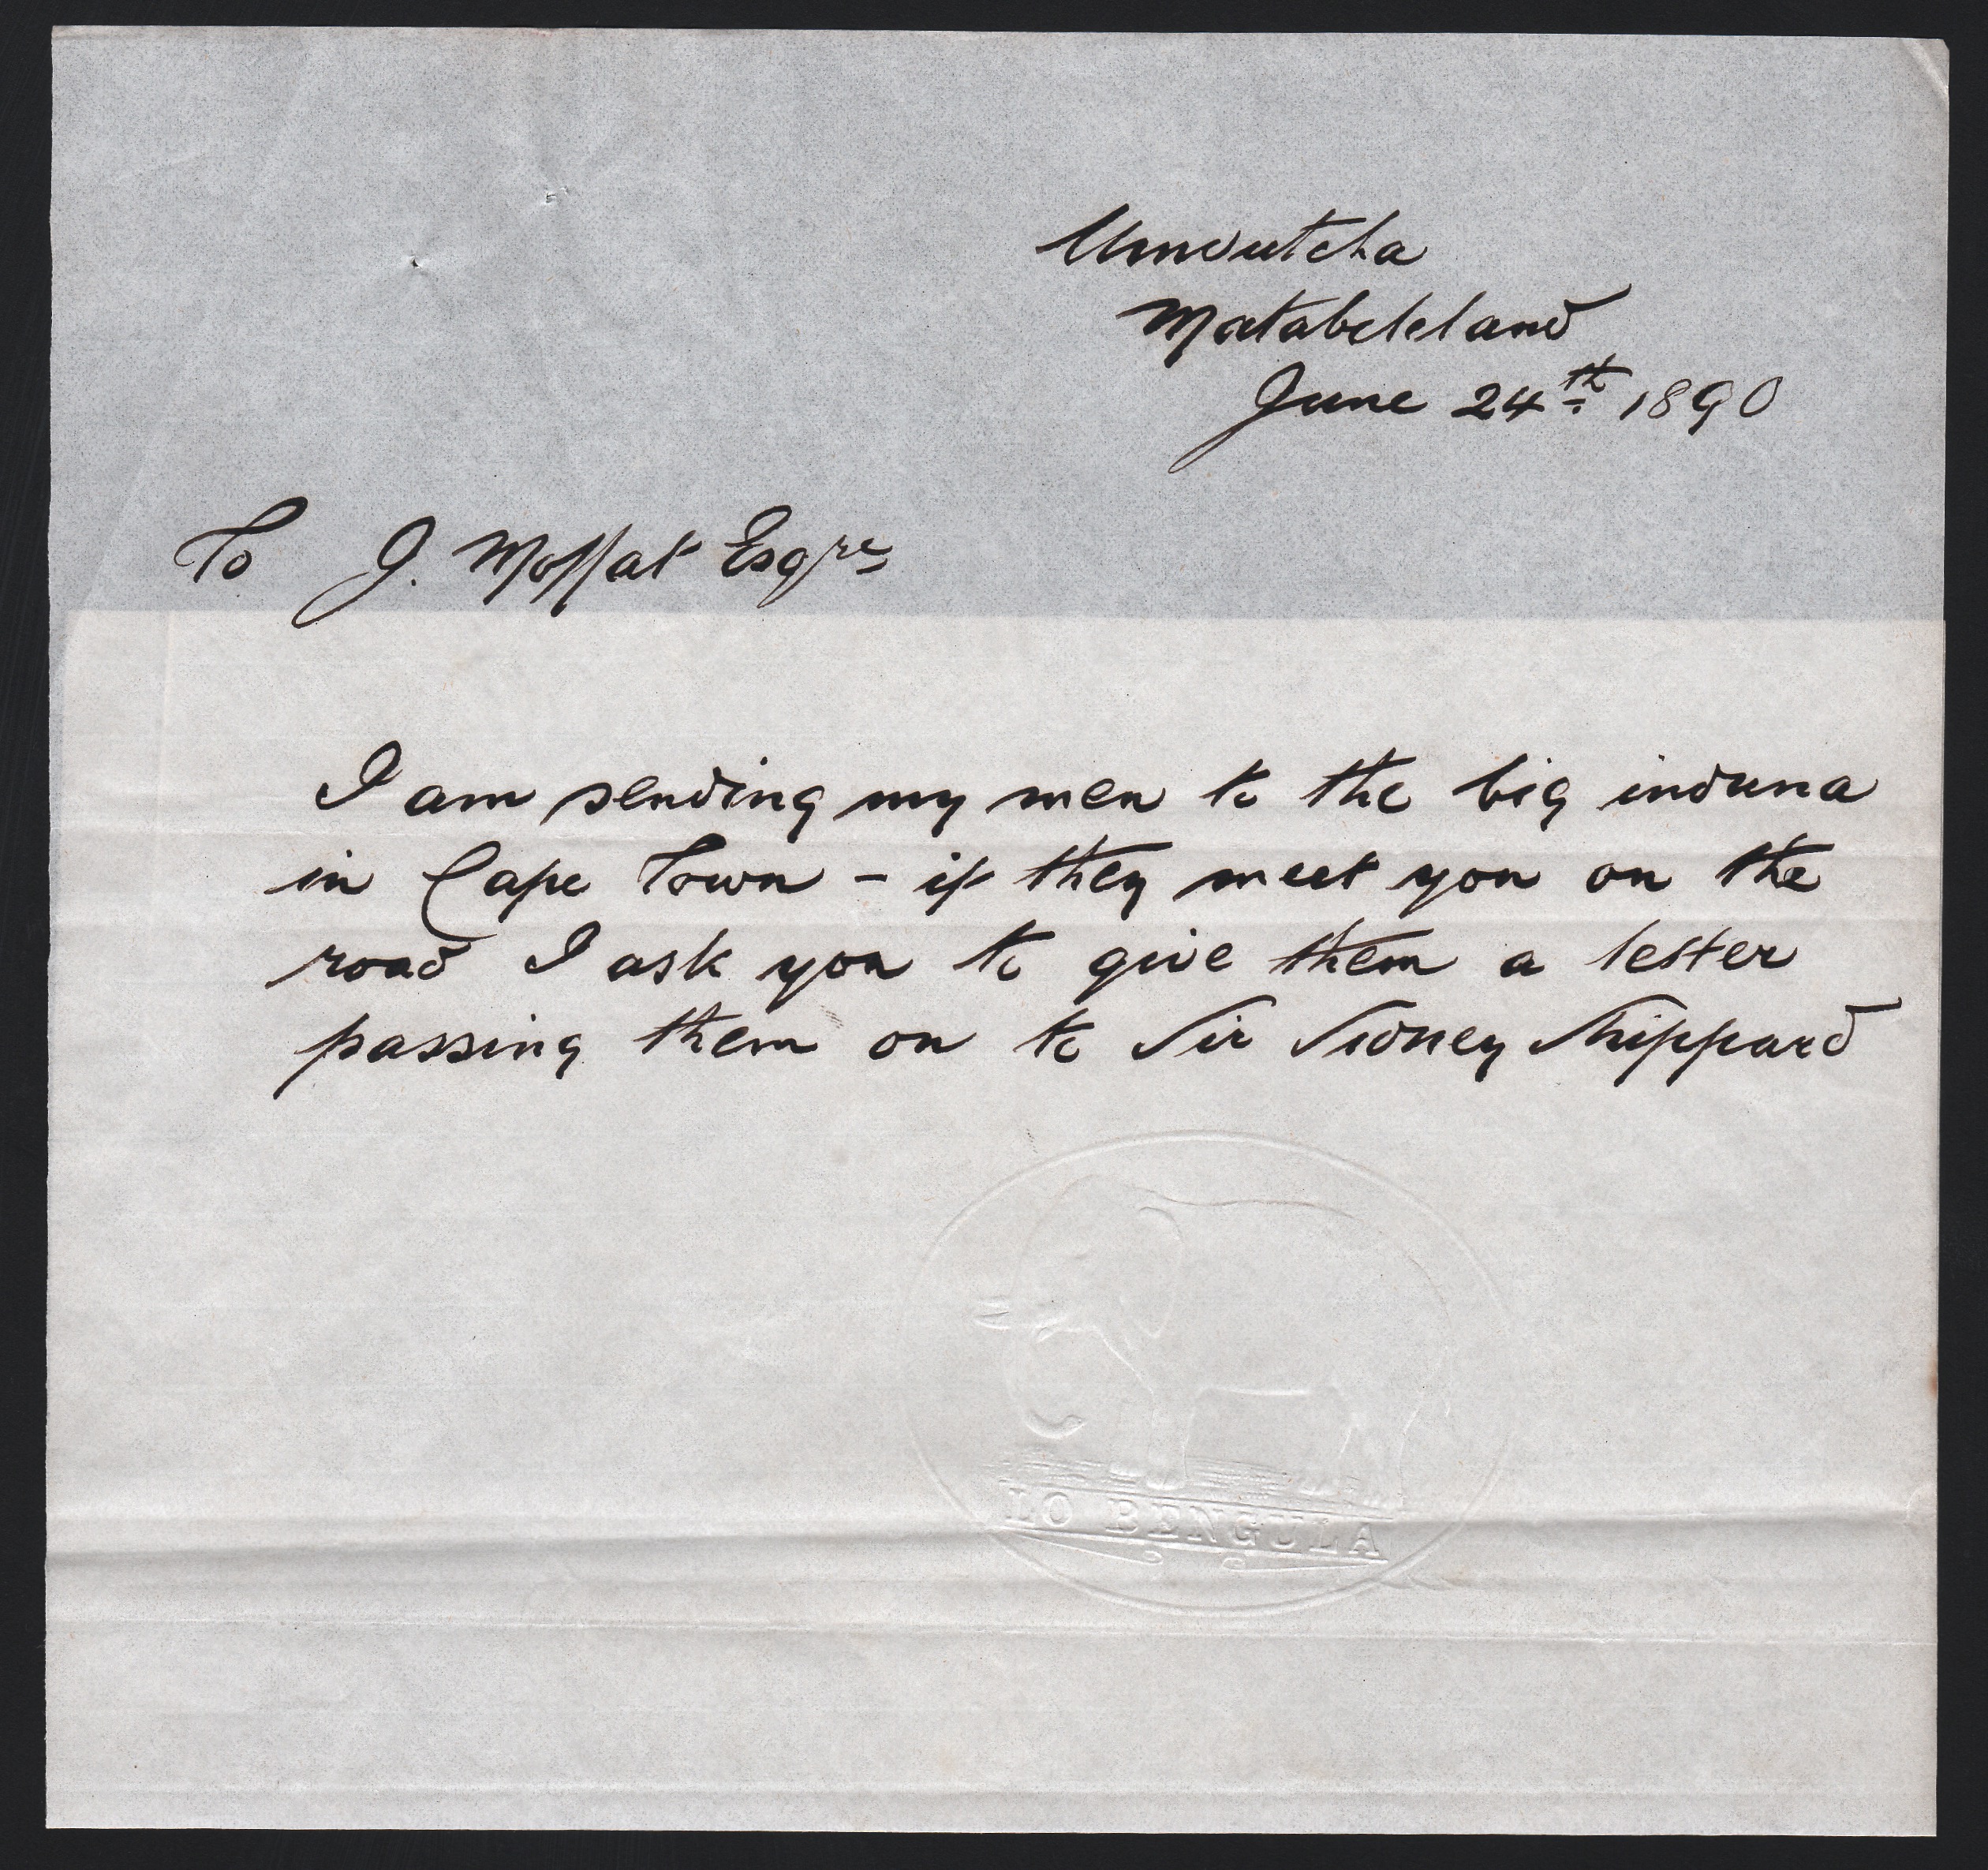 Umvutcha
Matabeleland
June 24th 1890
To J. Moffat Esqre
I am sending my men to the big induna
in Cape Town - if they meet you on the
road I ask you to give them a letter
passing them on to Sir Sidney Shippard
LO BENGULA